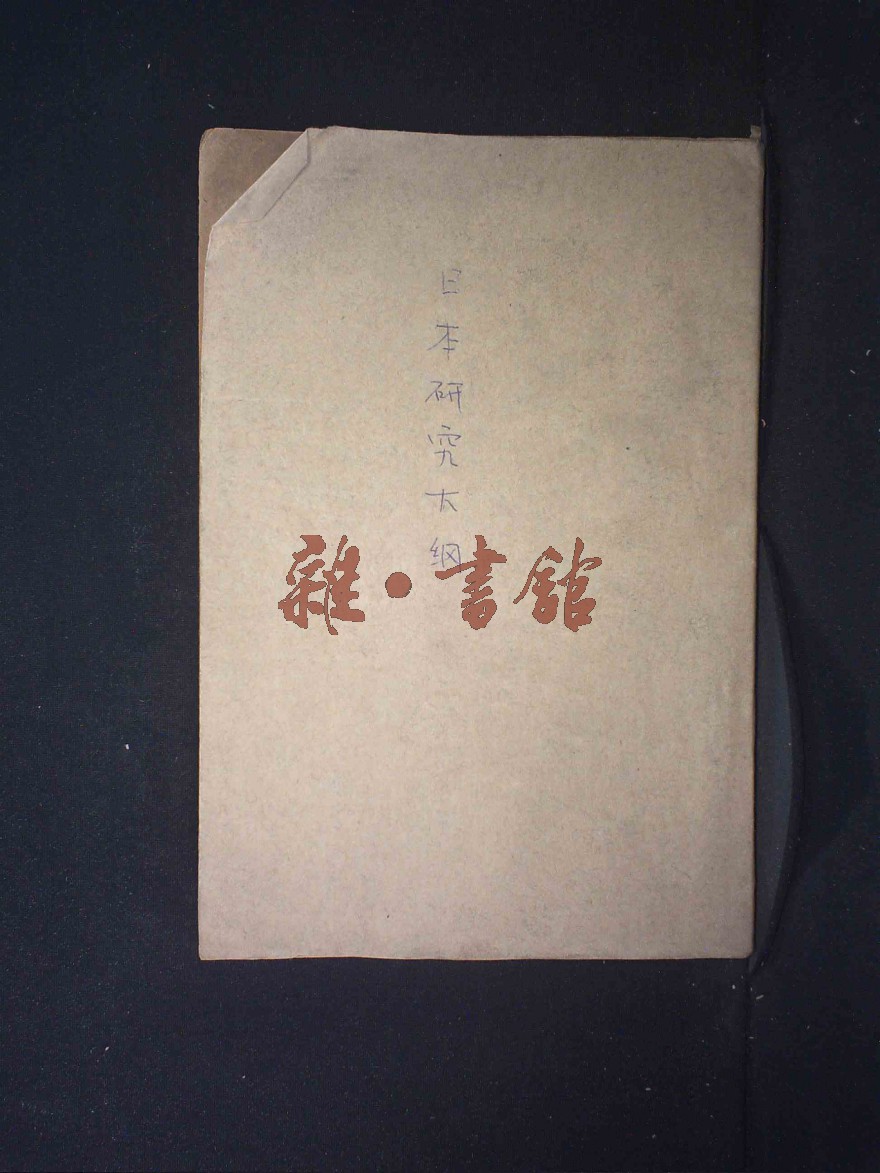 日本研究大纲
雜·書館